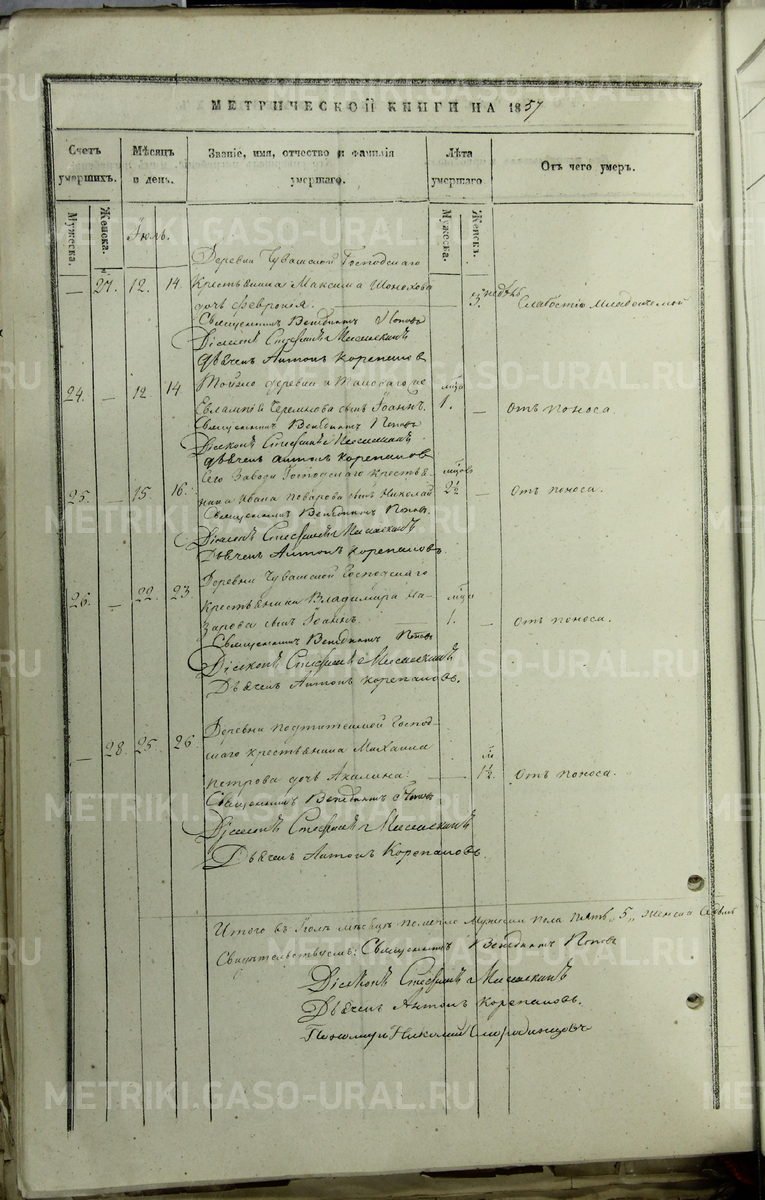 МЕТРИЧЕСКОЙ КНИГИ НА 1857
Счетъ умершихъ.
Мѣсяцъ и день.
Званіе, имя, отчество и фамилія умершаго.
Лѣта умершаго
Отъ чего умеръ.
Мужеска.
Женска.
Мужеска.
Женск.
Іюль.
Деревни Чувашской Господскаго
— 27. 12. 14. Крестьянина Максима
дочь Феврония. — 5. недѣль Слабостію младенческой
Священникъ Венедиктъ Поповъ
Діаконъ Стефанъ
Дьячекъ Антонъ Корепановъ
24. — 12 14 Тойже деревни и таковаго же
Евлампія сынъ Іоаннъ. мца 1. — Отъ поноса.
Священникъ Венедиктъ Поповъ
Діаконъ Стефанъ
Дьячекъ Антонъ Корепановъ
25. — 15. 16. Сего Завода Господскаго крестья-
нина Ивана Поварова сынъ Николай мцовъ 2½ — Отъ поноса.
Священникъ Венедиктъ Поповъ
Діаконъ Стефанъ
Дьячекъ Антонъ Корепановъ.
26. — 22. 23. Деревни Чувашской Господскаго
крестьянина Владимира На-
зарова сынъ Іоаннъ. — мца 1. — Отъ поноса.
Священникъ Венедиктъ Поповъ
Діаконъ Стефанъ
Дьячекъ Антонъ Корепановъ.
— 28. 25. 26. Деревни Господ-
скаго крестьянина Михаила
Петрова дочь Акилина: — м 1½. Отъ поноса.
Священникъ Венедиктъ Поповъ
Діаконъ Стефанъ
Дьячекъ Антонъ Корепановъ.
Итого въ Іюлѣ мѣсяцѣ померло Мужеска пола пять „5„ Женска
Свидѣтельствуемъ: Священникъ Венедиктъ Поповъ
Діаконъ Стефанъ
Дьячекъ Антонъ Корепановъ.
Пономарь Николай Смородинцовъ
METRIKI.GASO-URAL.RU